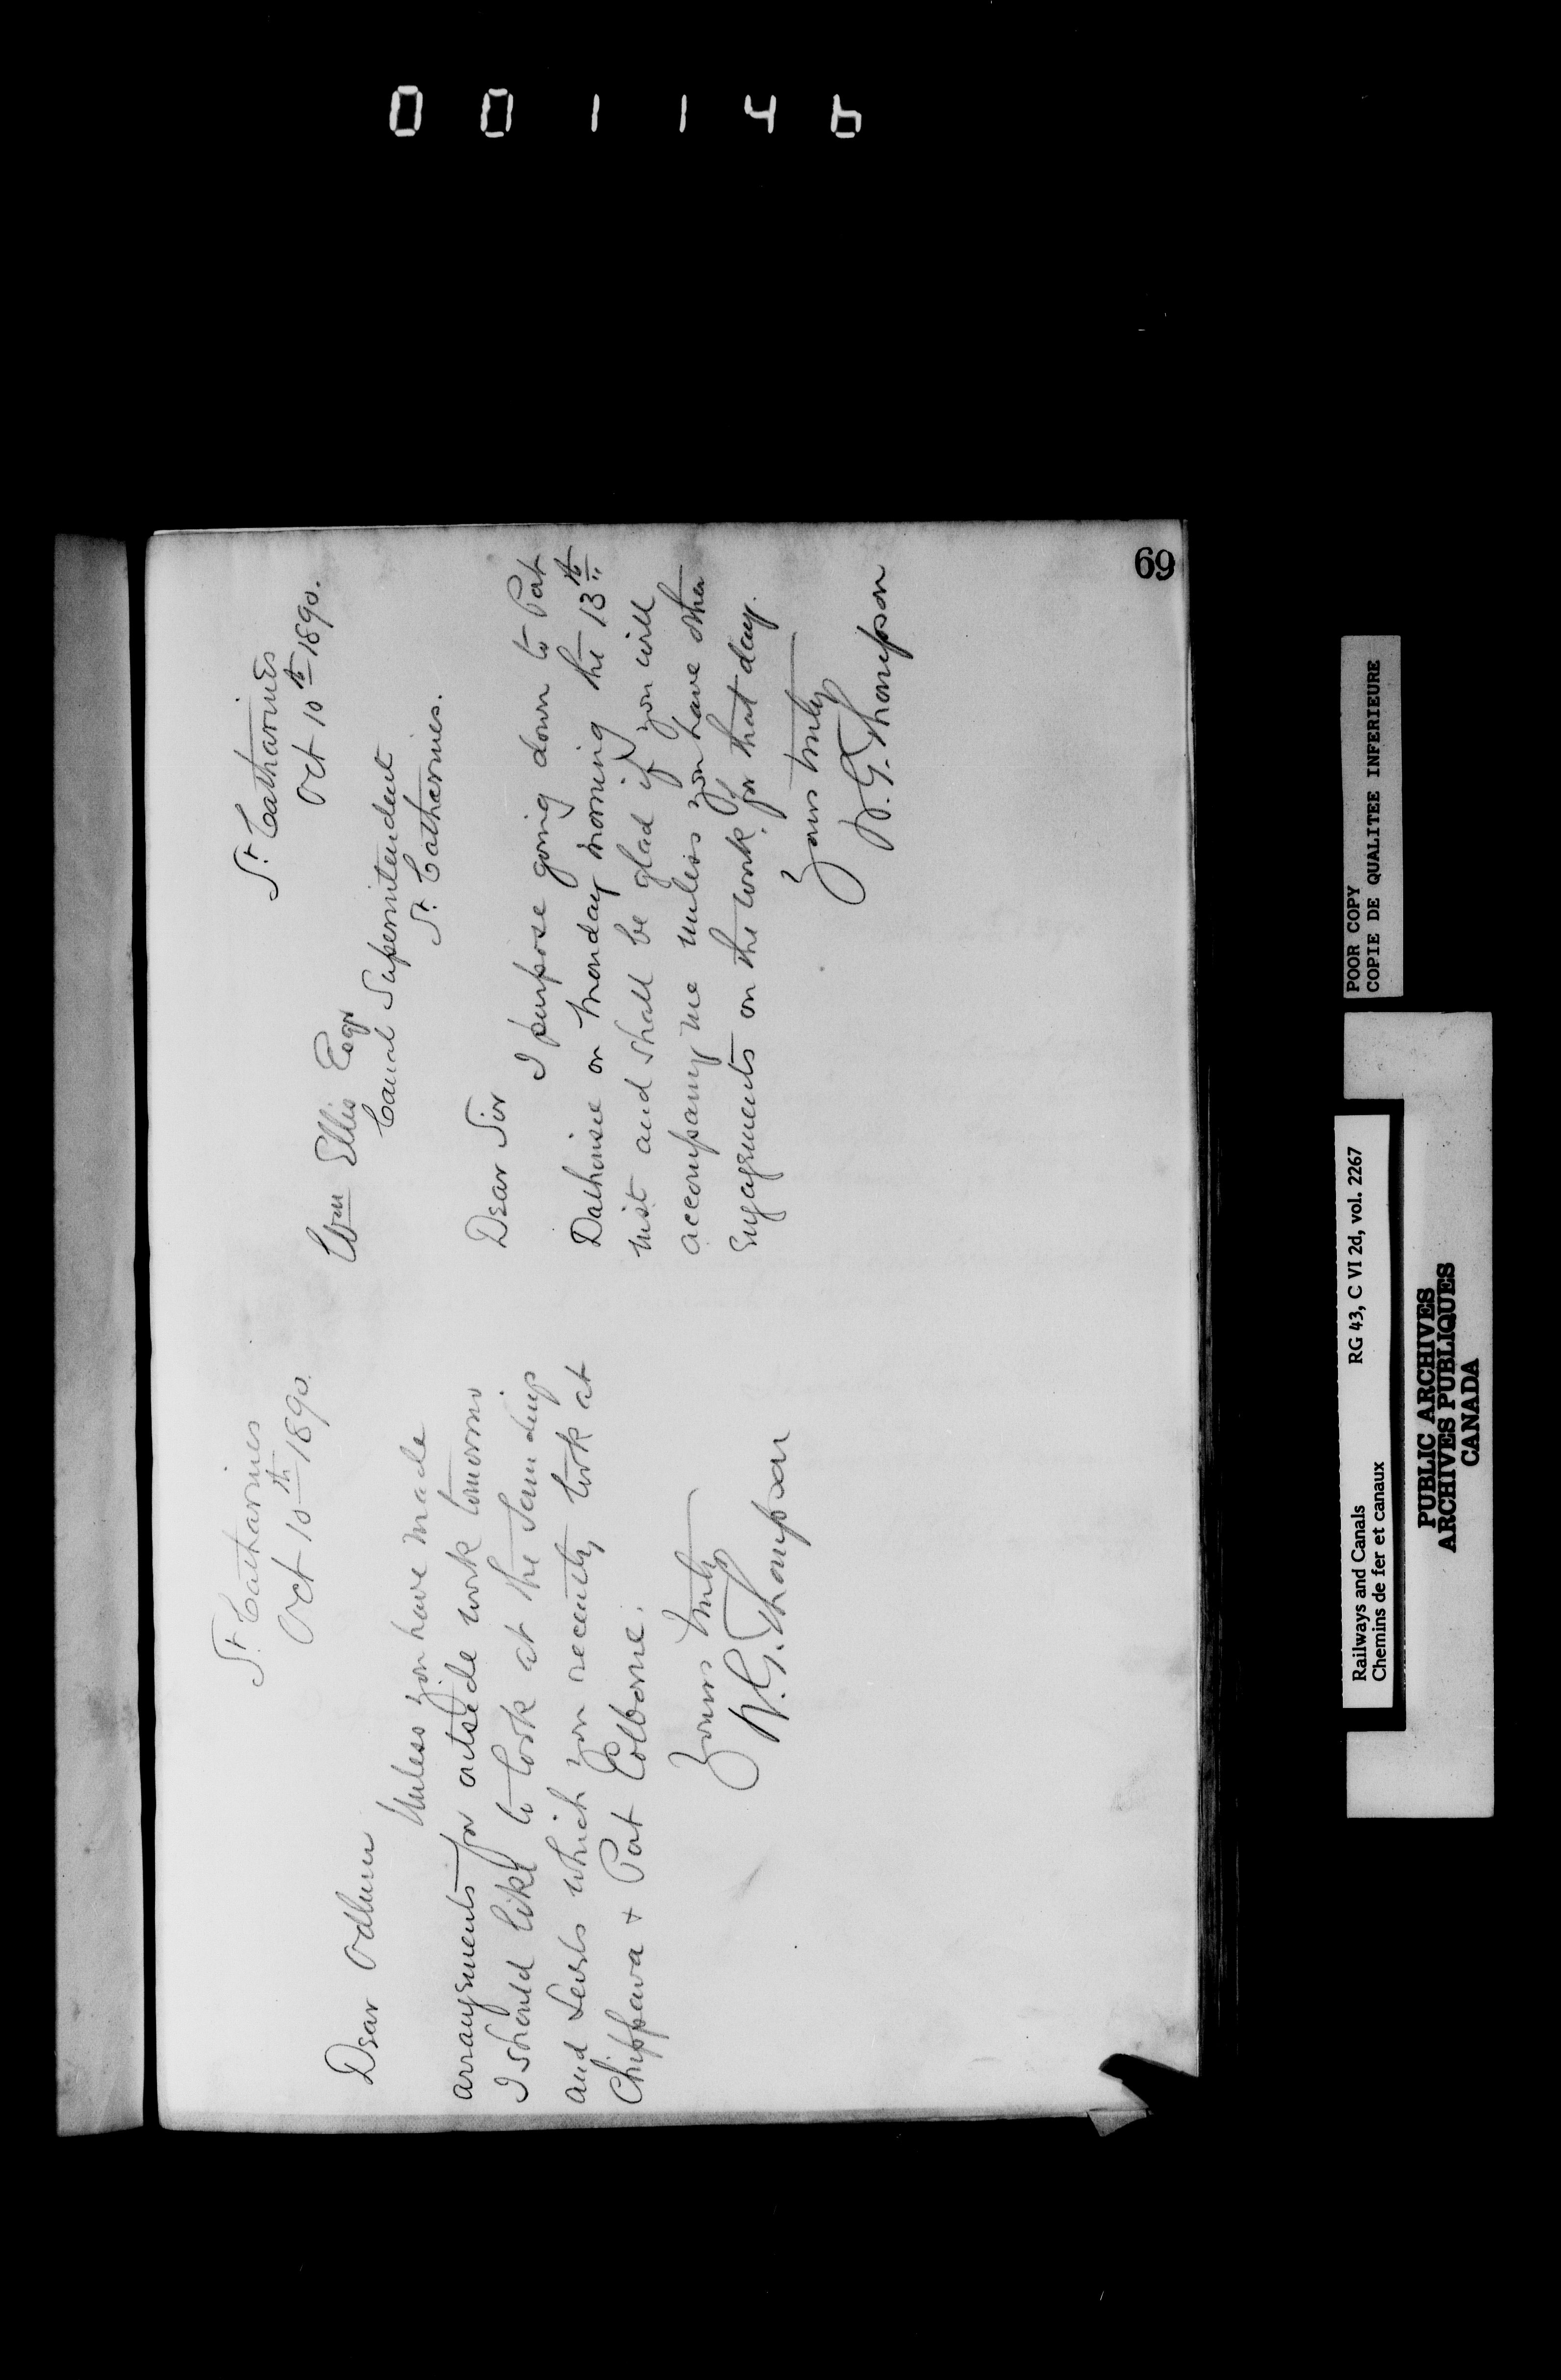 001146
69
St. Catharines
Oct 10th 1890.
Dear Odlum
Unless you have made
arrangements for outside work tomorrow
I should like to look at the Soundings
and Levels which you recently took at
Chippawa & Port Colborne.
Yours truly
W.G. Thompson
St. Catharines
Oct 10th 1890.
Wm Ellis Esqr
Canal Superintendent
St. Catharines.
Dear Sir
I purpose going down to Port
Dalhousie on Monday morning the 13th
inst and shall be glad if you will
accompany me unless you have other
Engagements on the work for that day.
Yours truly
W.G. Thompson
POOR COPY
COPIE DE QUALITEE INFERIEURE
Railways and Canals RG 43, C VI 2d, vol. 2267
Chemins de fer et canaux
PUBLIC ARCHIVES
ARCHIVES PUBLIQUES
CANADA